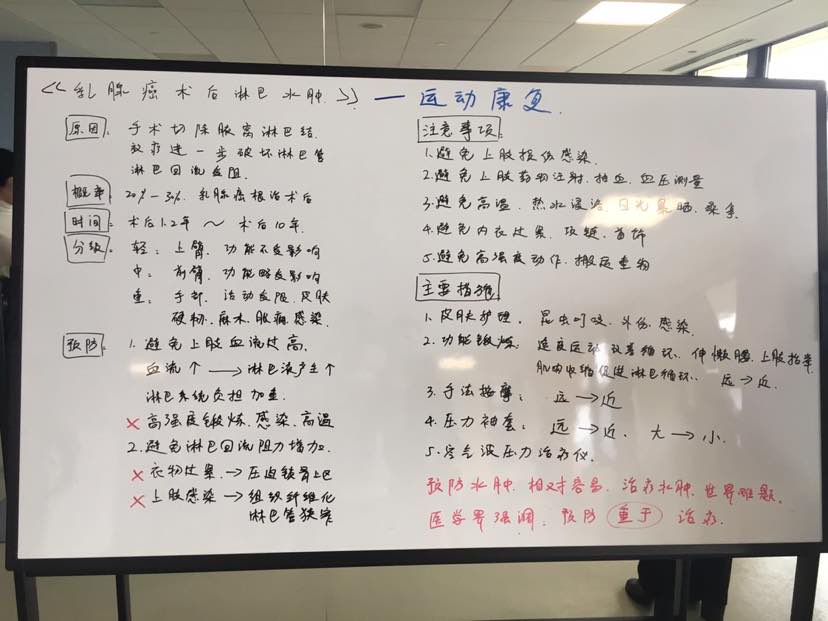 《乳腺癌术后淋巴水肿》—运动康复
原因: 手术切除腋窝淋巴结.
放疗进一步破坏淋巴管
淋巴回流受阻.
概率: 20% — 30%. 乳腺癌根治术后
时间: 术后1.2年 ～ 术后10年.
分级: 轻: 上臂. 功能不受影响
中: 前臂. 功能略受影响
重: 手部. 活动受限. 皮肤
硬韧. 麻木. 胀痛. 感染.
预防: 1. 避免上肢血流过高.
血流个 → 淋巴液产生个
淋巴系统负担加重.
× 高强度锻炼. 感染. 高温
2. 避免淋巴回流阻力增加.
× 衣物过紧. → 压迫锁骨上凹
× 上肢感染 → 组织纤维化
淋巴管狭窄
注意事项:
1. 避免上肢损伤感染.
2. 避免上肢药物注射. 抽血. 血压测量
3. 避免高温. 热水浸浴. 日光暴晒. 桑拿
4. 避免内衣过紧. 项链. 首饰
5. 避免高强度动作. 搬运重物
主要措施:
1. 皮肤护理. 昆虫叮咬. 外伤. 感染.
2. 功能锻炼: 适度运动改善循环. 伸懒腰. 上肢抬举
肌肉收缩促进淋巴循环. 远→近.
3. 手法按摩: 远→近
4. 压力袖套: 远→近. 大→小.
5. 空气波压力治疗仪.
预防水肿. 相对容易. 治疗水肿. 世界难题.
医学界强调. 预防 重于 治疗.